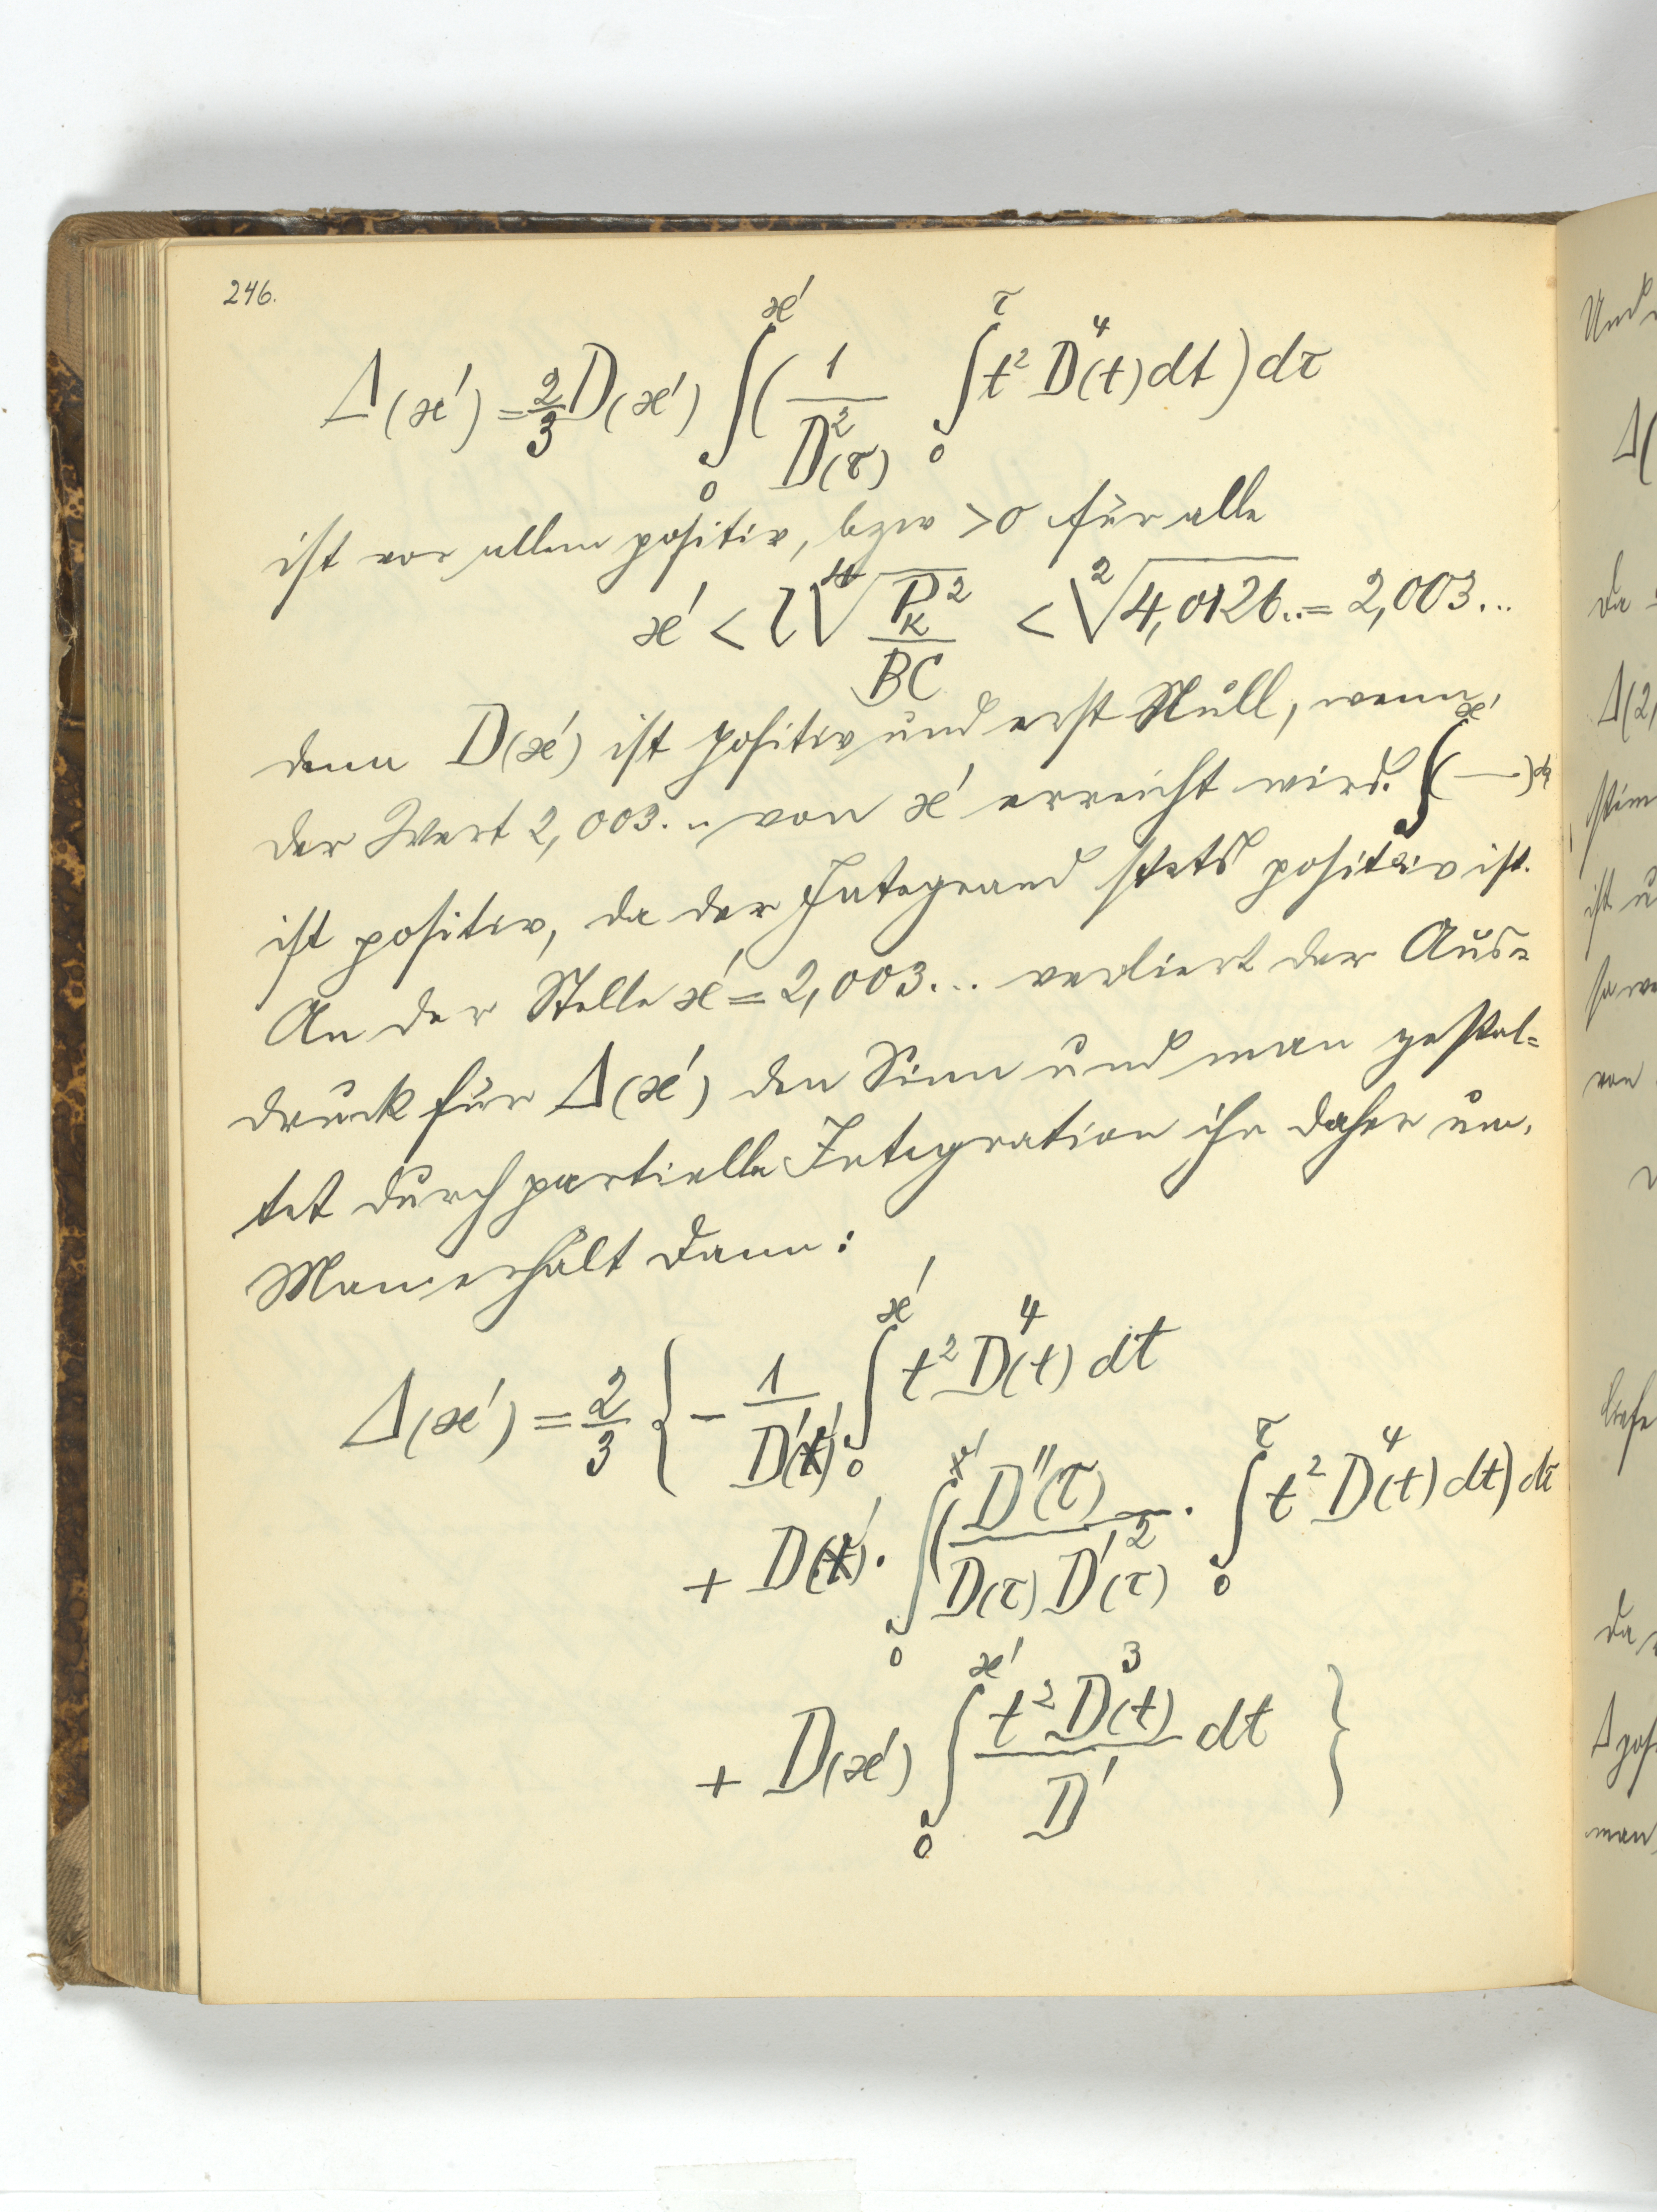 246.
Δ(x') = 2/3 D(x') ∫₀^x' ( 1/D²(τ) ∫₀^τ t² D⁴(t) dt ) dτ
ist vor allem positiv, bzw > 0 für alle
x' < l ⁴√(P_K²/BC) < ²√4,0126.. = 2,003...
denn D(x') ist positiv und erst Null, wenn
der Wert 2,003... von x' erreicht wird. ∫₀^x' (—)dτ
ist positiv, da der Integrand stets positiv ist.
An der Stelle x' = 2,003... verliert der Aus=
druck für Δ(x') den Sinn und man gestal=
tet durch partielle Integration ihn daher um.
Man erhält dann:
Δ(x') = 2/3 { - 1/D'(x') ∫₀^x' t² D⁴(t) dt
+ D(x') · ∫₀^x' ( D''(τ)/(D(τ) D'²(τ)) · ∫₀^τ t² D⁴(t) dt) dτ
+ D(x') ∫₀^x' t² D³(t)/D' dt }
Und
Δ(
da
Δ(2,
stim
ist u
von
da
man